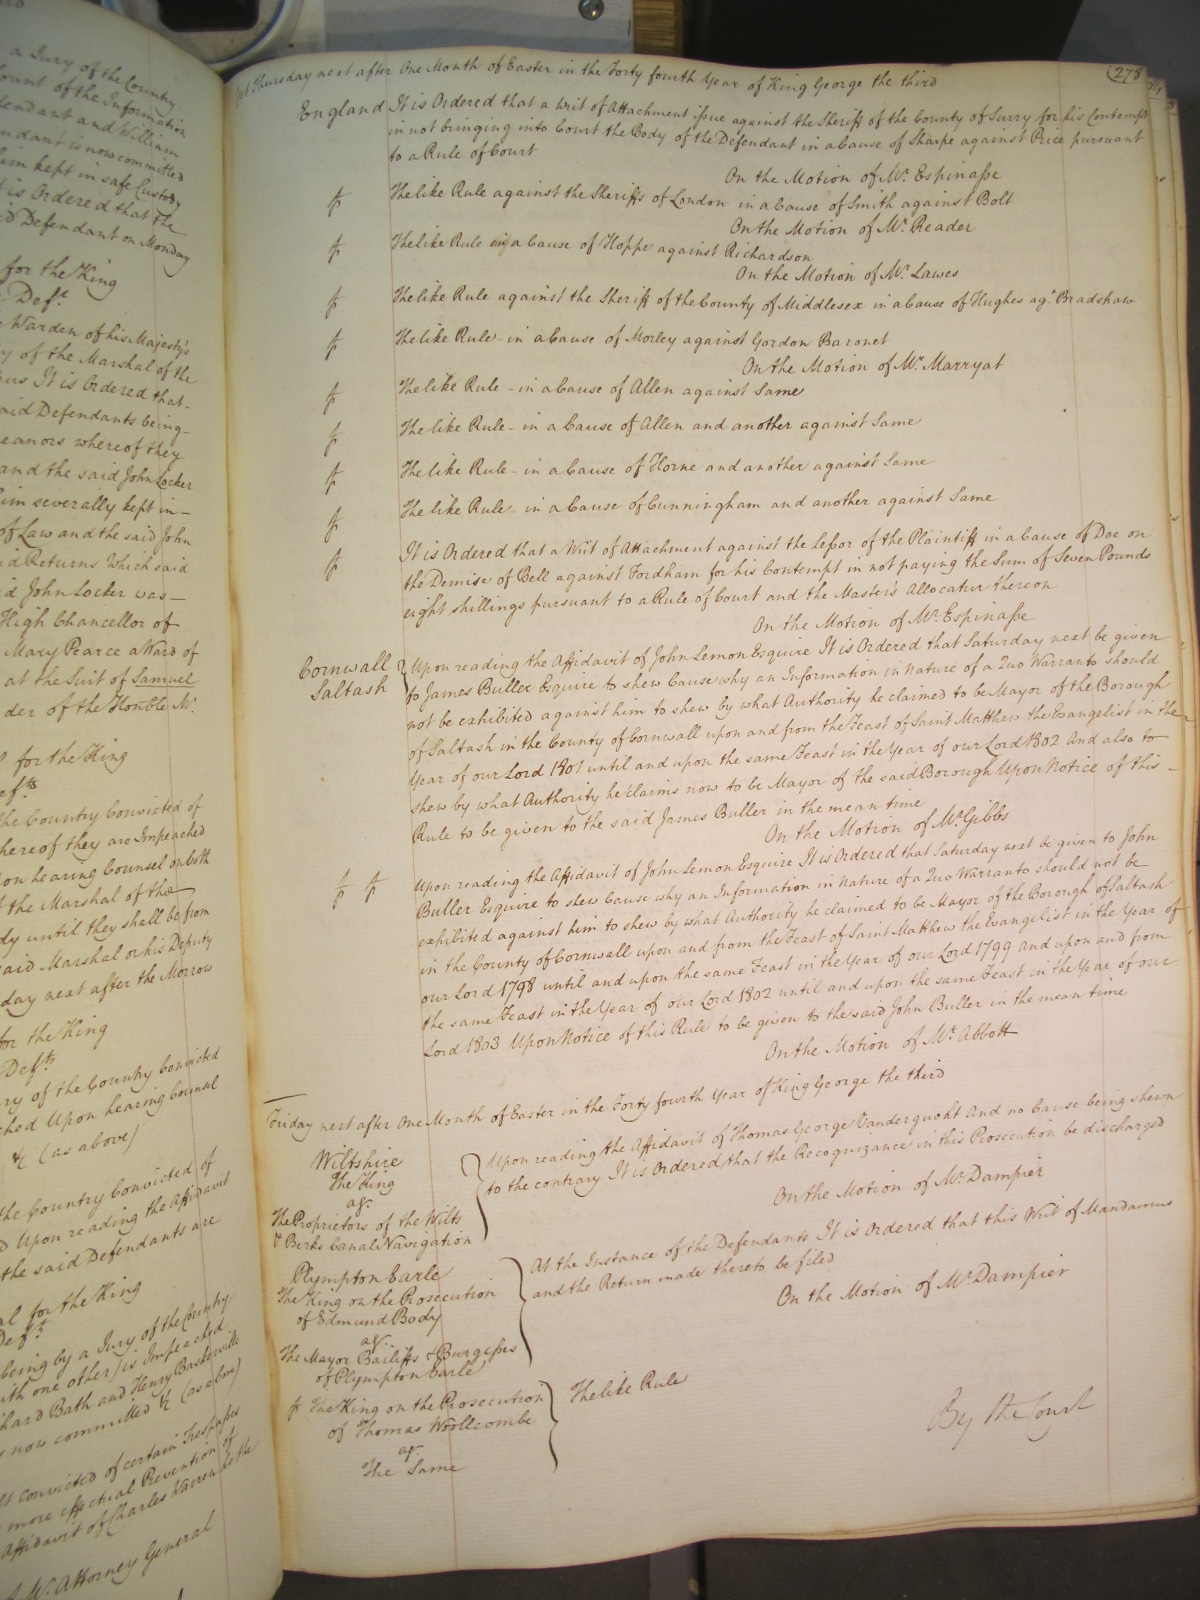 a Jury of the Country
ount of the Information
endant and William
endant is now committed
him kept in safe Custody
it is Ordered that the
id Defendant on Monday
for the King
Def.t
Warden of his Majesty's
y of the Marshal of the
It is Ordered that
aid Defendants being
eanors whereof they
and the said John Locker
him severally kept in
of Law and the said John
d Returns Which said
id John Locker was
High Chancellor of
Mary Pearce a Ward of
at the Suit of Samuel
der of the Honble Mr.
for the King
efts
the Country Convicted of
hereof they are Impeached
on hearing Counsel on both
the Marshal of the
dy until they shall be from
said Marshal or his Deputy
day next after the Morrow
for the King
Defts
ry of the Country Convicted
ched Upon hearing Counsel
&c (as above)
the Country Convicted of
d Upon reading the Affidavit
the said Defendants are
al for the King
Deft
being by a Jury of the Country
ith one other) is Impeached
hard Bath and Henry Baskerville
s now committed &c (as above)
convicted of certain Trespasses
more effectual Prevention of
Affidavit of Charles Warren
Mr. Attorney General
278
Thursday next after One Month of Easter in the Forty fourth Year of King George the third
England It is Ordered that a writ of Attachment issue against the Sheriff of the County of Surry for his Contempt
in not bringing into Court the Body of the Defendant in a Cause of Sharpe against Price pursuant
to a Rule of Court
On the Motion of Mr. Espinasse
The like Rule against the Sheriffs of London in a Cause of Smith against Bolt
On the Motion of Mr. Reader
The like Rule in a Cause of Hoppe against Richardson
On the Motion of Mr. Lawes
The like Rule against the Sheriff of the County of Middlesex in a Cause of Hughes agt. Bradshaw
The like Rule - in a Cause of Morley against Gordon Baronet
On the Motion of Mr. Marryat
The like Rule - in a Cause of Allen against Same
The like Rule - in a Cause of Allen and another against Same
The like Rule - in a Cause of Horne and another against Same
The like Rule - in a Cause of Cunningham and another against Same
It is Ordered that a Writ of Attachment against the Lessor of the Plaintiff in a Cause of Doe on
the Demise of Bell against Fordham for his Contempt in not paying the Sum of Seven Pounds
eight shillings pursuant to a Rule of Court and the Master's Allocatur thereon
On the Motion of Mr. Espinasse
Cornwall
Saltash
Upon reading the Affidavit of John Lemon Esquire It is Ordered that Saturday next be given
to James Buller Esquire to shew Cause why an Information in Nature of a Quo Warranto should
not be exhibited against him to shew by what Authority he claimed to be Mayor of the Borough
of Saltash in the County of Cornwall upon and from the Feast of Saint Matthew the Evangelist in the
Year of our Lord 1801 until and upon the same Feast in the Year of our Lord 1802 And also to
shew by what Authority he claims now to be Mayor of the said Borough Upon Notice of this
Rule to be given to the said James Buller in the mean time
On the Motion of Mr. Gibbs
Upon reading the Affidavit of John Lemon Esquire It is Ordered that Saturday next be given to John
Buller Esquire to shew Cause why an Information in Nature of a Quo Warranto should not be
exhibited against him to shew by what Authority he claimed to be Mayor of the Borough of Saltash
in the County of Cornwall upon and from the Feast of Saint Matthew the Evangelist in the Year of
our Lord 1798 until and upon the same Feast in the Year of our Lord 1799 and upon and from
the same Feast in the Year of our Lord 1802 until and upon the same Feast in the Year of our
Lord 1803 Upon Notice of this Rule to be given to the said John Buller in the mean time
On the Motion of Mr. Abbott
Friday next after One Month of Easter in the Forty fourth Year of King George the third
Wiltshire
The King
agt.
The Proprietors of the Wilts
& Berks Canal Navigation
Upon reading the Affidavit of Thomas George Vandergucht And no Cause being shewn
to the contrary It is Ordered that the Recognizance in this Prosecution be discharged
On the Motion of Mr. Dampier
Plympton Earle
The King on the Prosecution
of Edmund Body
agt.
The Mayor Bailiffs & Burgesses
of Plympton Earle
At the Instance of the Defendants It is Ordered that this Writ of Mandamus
and the Return made thereto be filed
On the Motion of Mr. Dampier
The King on the Prosecution
of Thomas Woollcombe
agt.
The Same
The like Rule
By the Court